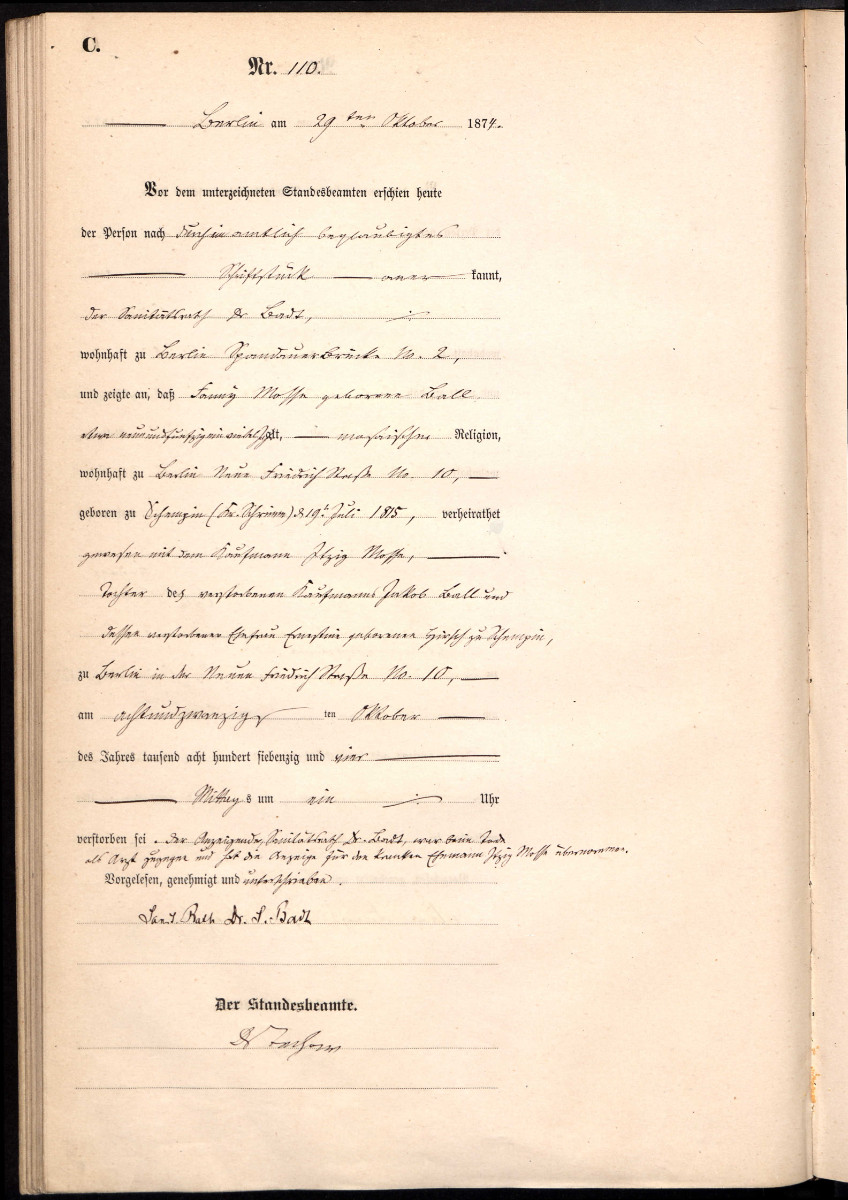 C.
Nr. 110.
Berlin am 29ten Oktober 1874.
Vor dem unterzeichneten Standesbeamten erschien heute
der Person nach durch amtlich beglaubigtes
Schriftstück aner kannt,
der Sanitätsrath Dr Badt,
wohnhaft zu Berlin Spandauerbrücke No. 2,
und zeigte an, daß Fanny Mosse geborene Ball
neunundfünfzig alt, mosaischer Religion,
wohnhaft zu Berlin Neue Friedrich Straße No. 10,
geboren zu Schempin (Kr. Schrimm) d 19t Juli 1815, verheirathet
gewesen mit dem Kaufmann Itzig Mosse,
Tochter des verstorbenen Kaufmanns Jakob Ball und
dessen verstorbener Ehefrau Ernestine geborenen Hirsch zu Schempin,
zu Berlin in der Neuen Friedrich Straße No. 10,
am achtundzwanzig ten Oktober
des Jahres tausend acht hundert siebenzig und vier
Mittags um ein Uhr
verstorben sei. Der Anzeigende, Sanitätsrath Dr. Badt, war beim Tode
als Arzt zugegen und hat die Anzeige für den kranken Ehemann Itzig Mosse übernommen.
Vorgelesen, genehmigt und unterschrieben.
Sanit. Rath Dr. S. Badt
Der Standesbeamte.